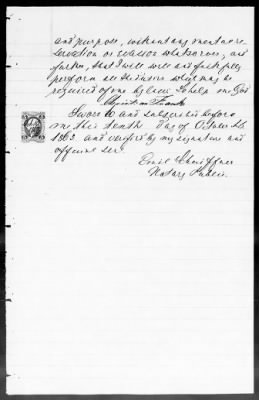 and purpose, without any mental re-
servation or evasion whatsoever, and
further, that I will well and faithfully
perform all the duties which may be
required of me by law. So help me God
Sworn to and subscribed before
me this tenth day of October A.D.
1863. and verified by my signature and
official seal.
Emil
Notary Public.